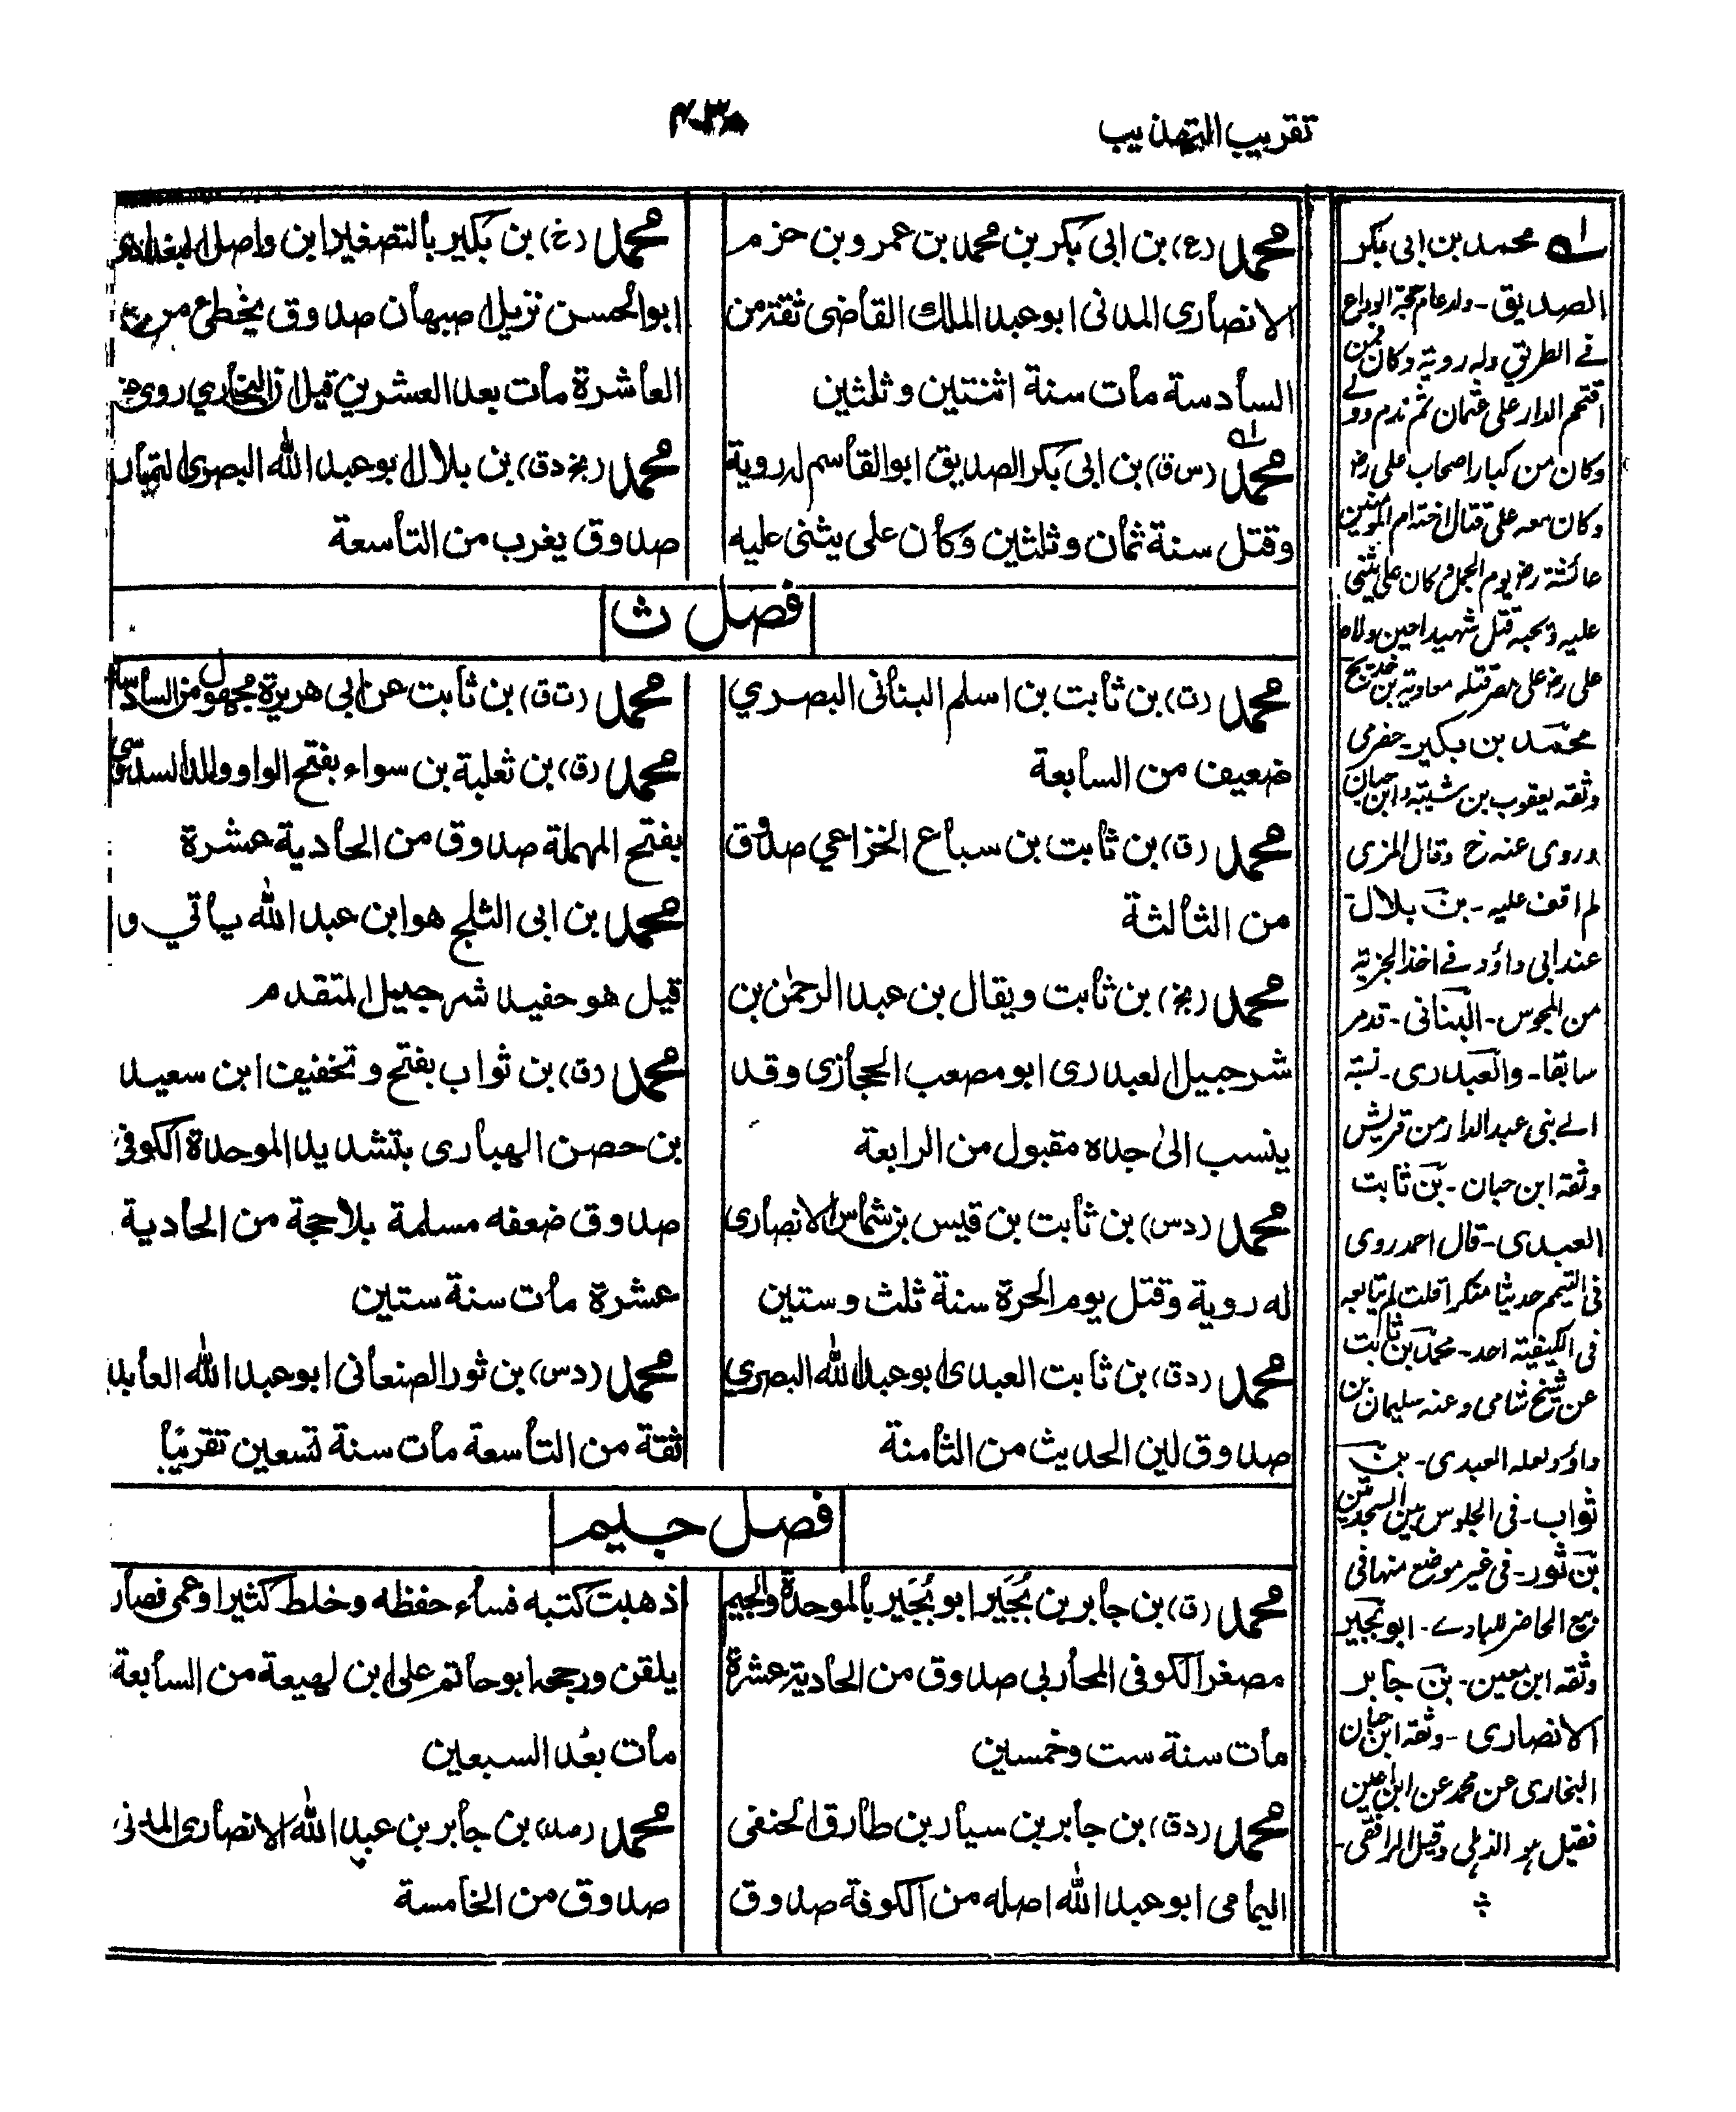 تقريب التهذيب
محمد (ع) بن ابي بكر بن محمد بن عمرو بن حزم
الانصاري المدني ابو عبد الملك القاضي ثقة من
السادسة مات سنة اثنتين وثلثين
محمد (س ق) بن ابي بكر الصديق ابو القاسم له روية
وقتل سنة ثمان وثلثين وكان علي يثني عليه
محمد (خ) بن بكير بالتصغير ابن واصل البغدادي
ابو الحسن نزيل اصبهان صدوق يخطئ من
العاشرة مات بعد العشرين قيل ان البخاري روى
محمد (بخ د ق) بن بلال ابو عبد الله البصري التمار
صدوق يغرب من التاسعة
فصل ث
محمد (ت) بن ثابت بن اسلم البناني البصري
ضعيف من السابعة
محمد (ق) بن ثابت بن سباع الخزاعي صدوق
من الثالثة
محمد (بخ) بن ثابت ويقال بن عبد الرحمٰن بن
شرحبيل العبدري ابو مصعب الحجازي وقد
ينسب الىٰ جده مقبول من الرابعة
محمد (دس) بن ثابت بن قيس بن شماس الانصاري
له روية وقتل يوم الحرة سنة ثلث وستين
محمد (دق) بن ثابت العبدي ابو عبد الله البصري
صدوق لين الحديث من الثامنة
محمد (ت ق) بن ثابت عن ابي هريرة مجهول من السادسة
محمد (ق) بن ثعلبة بن سواء بفتح الواو والمد السدوسي
بفتح المهملة صدوق من الحادية عشرة
محمد بن ابي الثلج هو ابن عبد الله يأتي و
قيل هو حفيد شرحبيل المتقدم
محمد (ق) بن ثواب بفتح وتخفيف ابن سعيد
بن حصن الهباري بتشديد الموحدة الكوفي
صدوق ضعفه مسلمة بلا حجة من الحادية
عشرة مات سنة ستين
محمد (دس) بن ثور الصنعاني ابو عبد الله العابد
ثقة من التاسعة مات سنة تسعين تقريبًا
فصل جيم
محمد (ق) بن جابر بن بُجَير ابو بُجَير بالموحدة والجيم
مصغر الكوفي المحاربي صدوق من الحادية عشرة
مات سنة ست وخمسين
محمد (دق) بن جابر بن سيار بن طارق الحنفي
اليمامي ابو عبد الله اصله من الكوفة صدوق
ذهبت كتبه فساء حفظه وخلط كثيرا وعمي فصار
يلقن ورجحه ابو حاتم على ابن لهيعة من السابعة
مات بعد السبعين
محمد (صد) بن جابر بن عبد الله الانصاري المدني
صدوق من الخامسة
محمد بن ابي بكر
الصديق - ولد عام حجة الوداع
في الطريق وله روية وكان فمن
اقتحم الدار على عثمان ثم ندم
وكان من كبار اصحاب علي رض
وكان معه على قتال ام المومنين
عائشة رض يوم الجمل وكان علي يثني
عليه ويحبه قتل شهيدا حين ولاه
علي رض على مصر قتله معاوية بن خديج
محمد بن بكير - حضرمي
وثقه يعقوب بن شيبه وابن حبان
وروى عنه خ وقال المزي
لم اقف عليه - بن بلال
عند ابي داؤد في اخذ الجزية
من المجوس - البناني - قدم
سابقا - والعبدري - نسبة
الى بني عبد الدار من قريش
وثقه ابن حبان - بن ثابت
العبدي - قال احمد روى
في التيمم حديثا منكرا قلت لم يتابعه
في الكيفية احد - محمد بن ثابت
عن شيخ شامي وعنه سليمان بن
داؤد لعله العبدي - بن
ثواب - في الجلوس بين السجدتين
بن ثور - في غير موضع منها في
بيع الحاضر للبادي - ابو بجير
وثقه ابن معين - بن جابر
الانصاري - وثقه ابن حبان
البخاري عن محمد عن ابن اعين
فقيل هو الذهلي وقيل الرافقي -